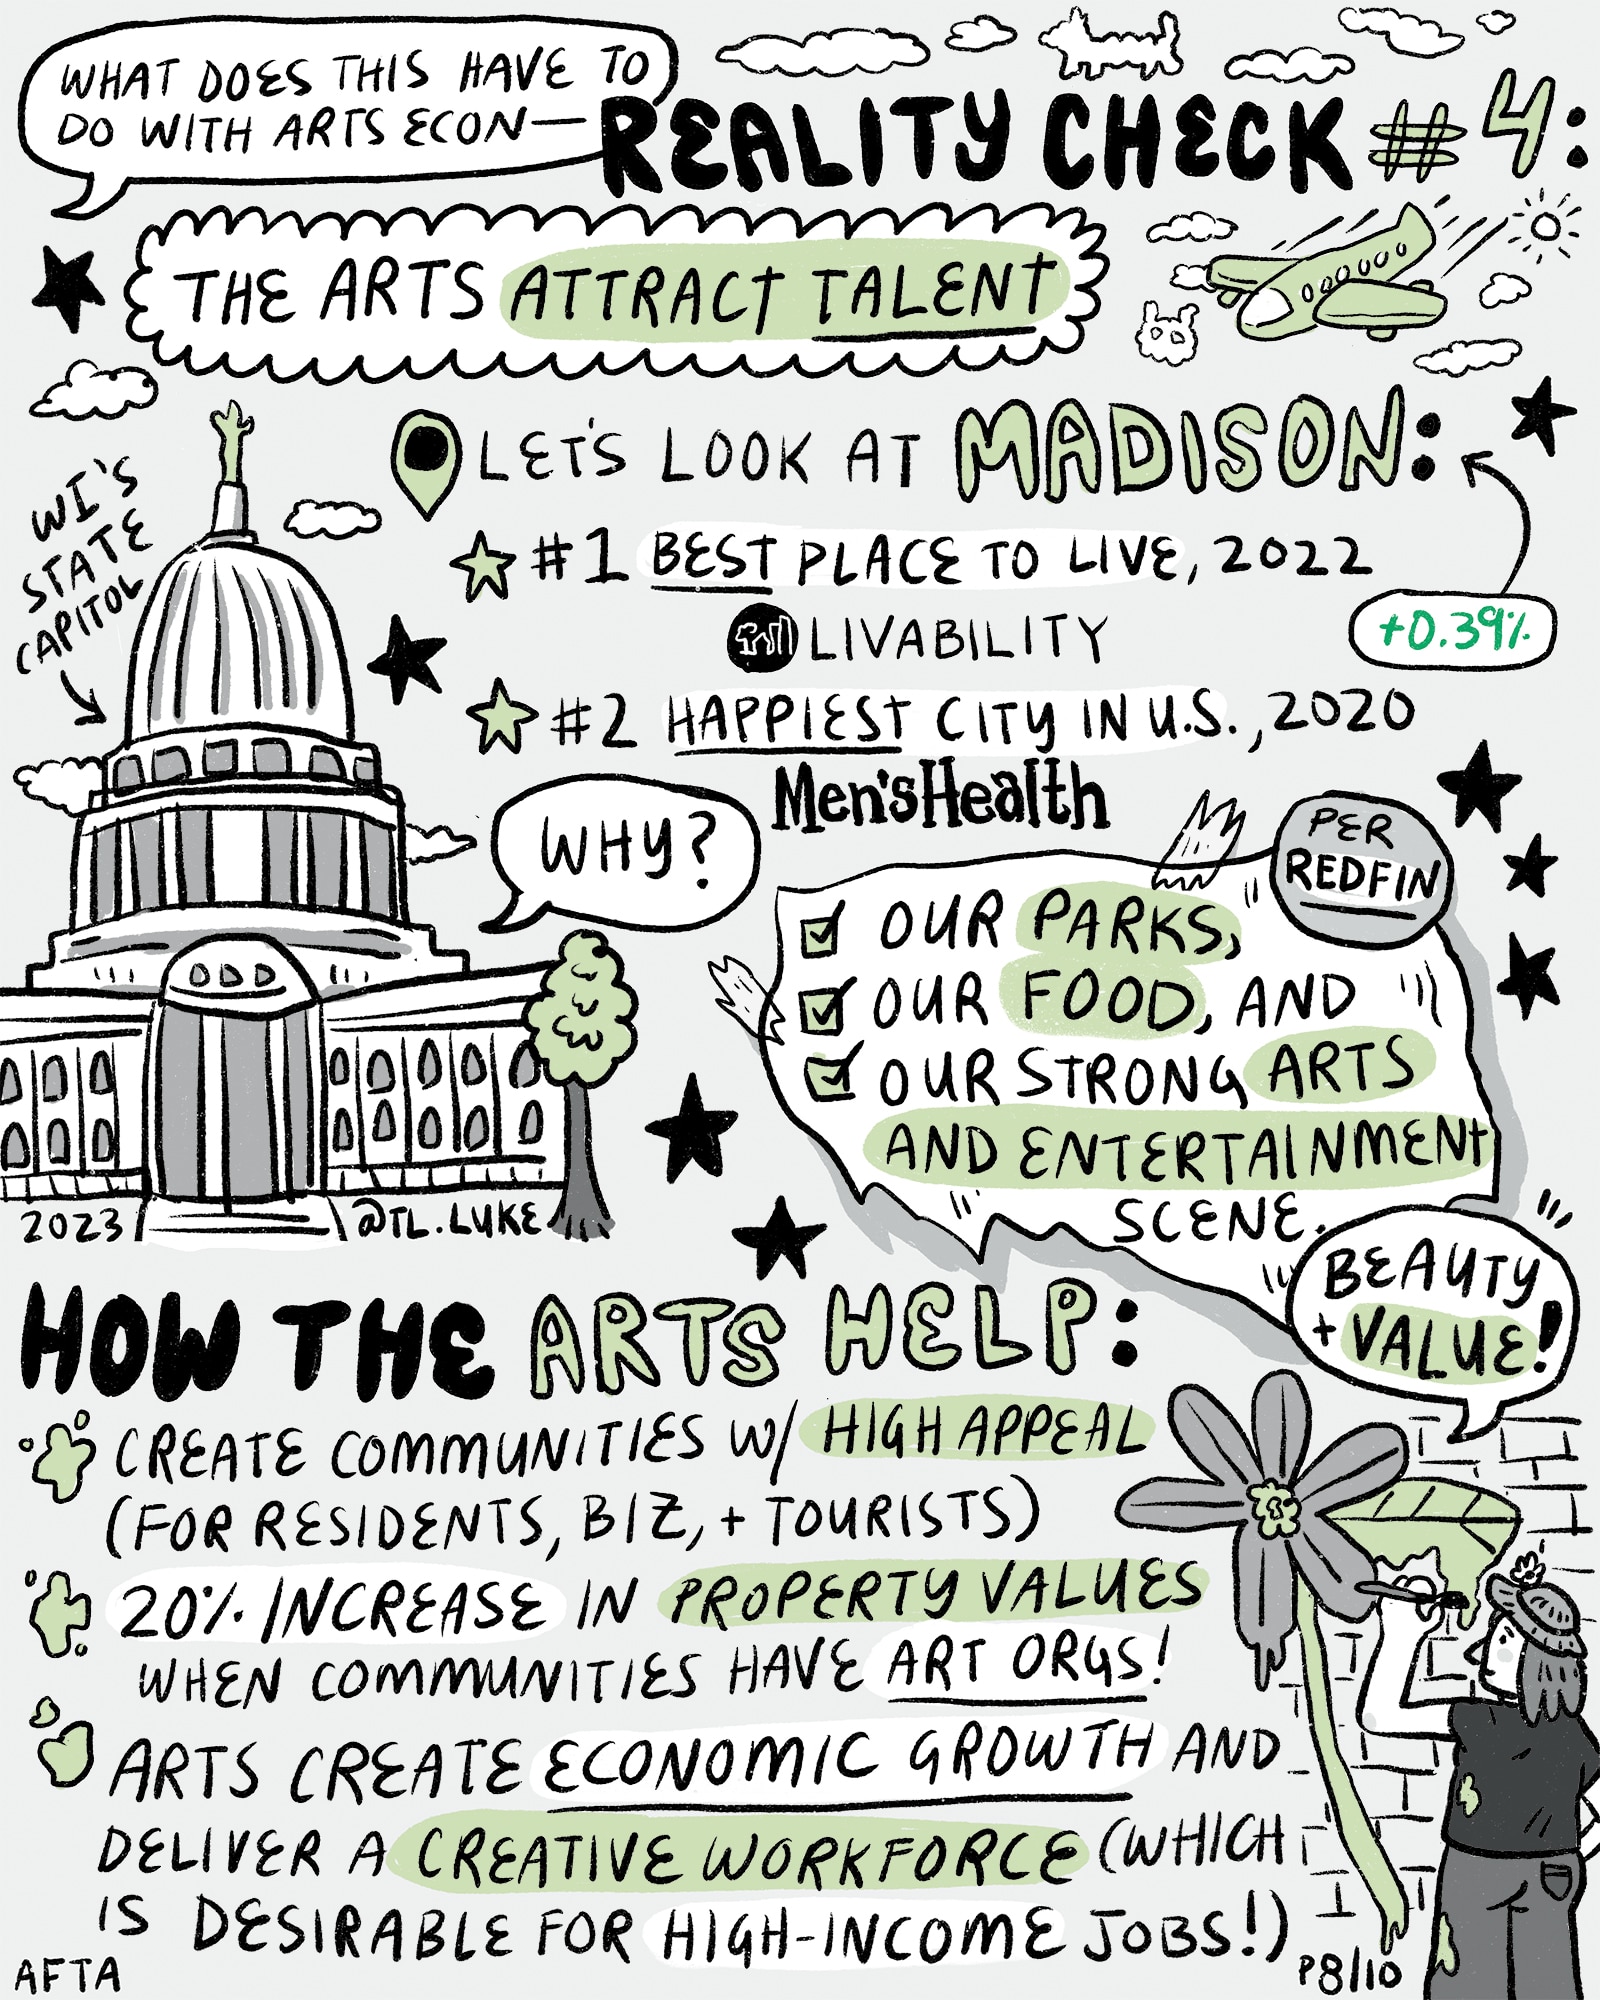 WHAT DOES THIS HAVE TO
DO WITH ARTS ECON—
REALITY CHECK #4:
THE ARTS ATTRACT TALENT
WI'S
STATE
CAPITOL
LET'S LOOK AT MADISON:
#1 BEST PLACE TO LIVE, 2022
LIVABILITY
+0.39%
#2 HAPPIEST CITY IN U.S., 2020
Men'sHealth
WHY?
PER
REDFIN
OUR PARKS,
OUR FOOD, AND
OUR STRONG ARTS
AND ENTERTAINMENT
SCENE.
2023
@TL.LUKE
BEAUTY
+ VALUE!
HOW THE ARTS HELP:
CREATE COMMUNITIES W/ HIGH APPEAL
(FOR RESIDENTS, BIZ, + TOURISTS)
20% INCREASE IN PROPERTY VALUES
WHEN COMMUNITIES HAVE ART ORGS!
ARTS CREATE ECONOMIC GROWTH AND
DELIVER A CREATIVE WORKFORCE (WHICH
IS DESIRABLE FOR HIGH-INCOME JOBS!)
AFTA
P8/10